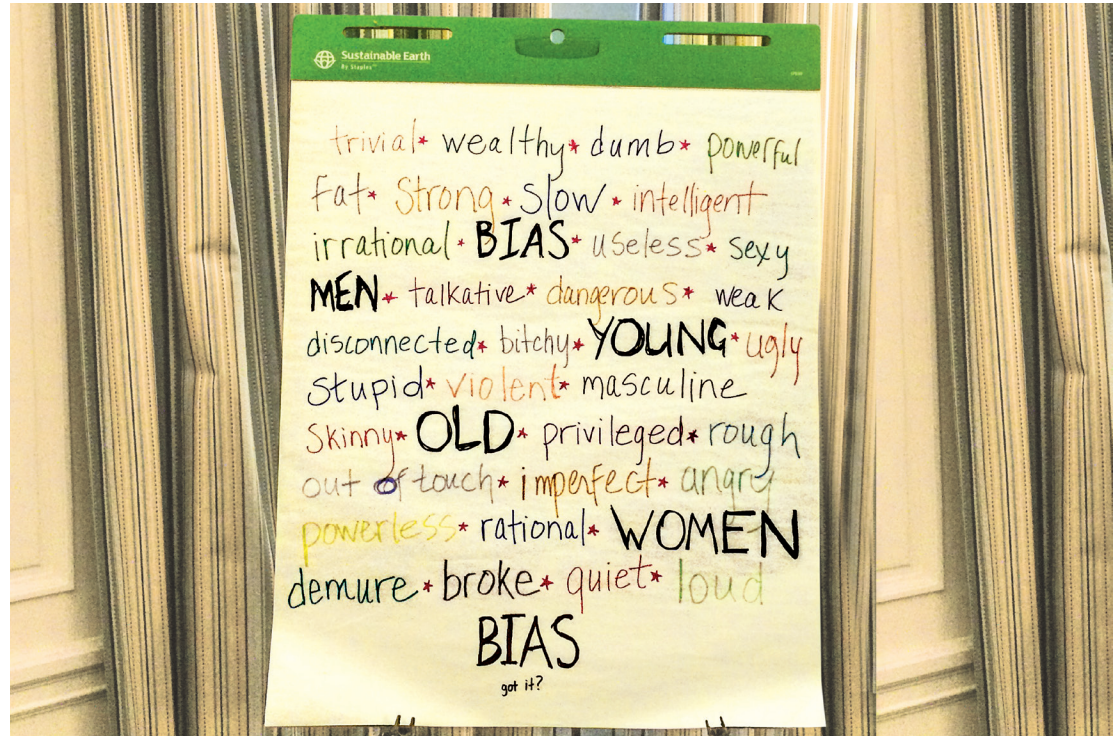 Sustainable Earth
By Staples™
trivial * wealthy * dumb * powerful
fat * Strong * Slow * intelligent
irrational * BIAS * useless * sexy
MEN * talkative * dangerous * weak
disconnected * bitchy * YOUNG * ugly
stupid * violent * masculine
Skinny * OLD * privileged * rough
out of touch * imperfect * angry
powerless * rational * WOMEN
demure * broke * quiet * loud
BIAS
got it?